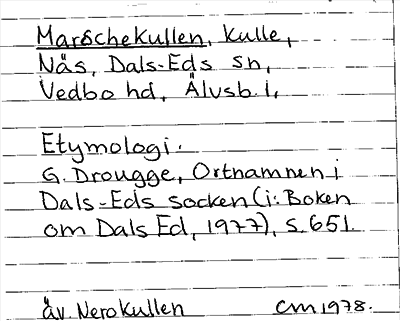 Marschekullen, kulle,
Näs, Dals-Eds sn,
Vedbo hd, Älvsb. l,
Etymologi.
G. Drougge, Ortnamnen i
Dals-Eds socken (i: Boken
om Dals Ed, 1977), s. 651.
äv. Nerokullen CM 1978.